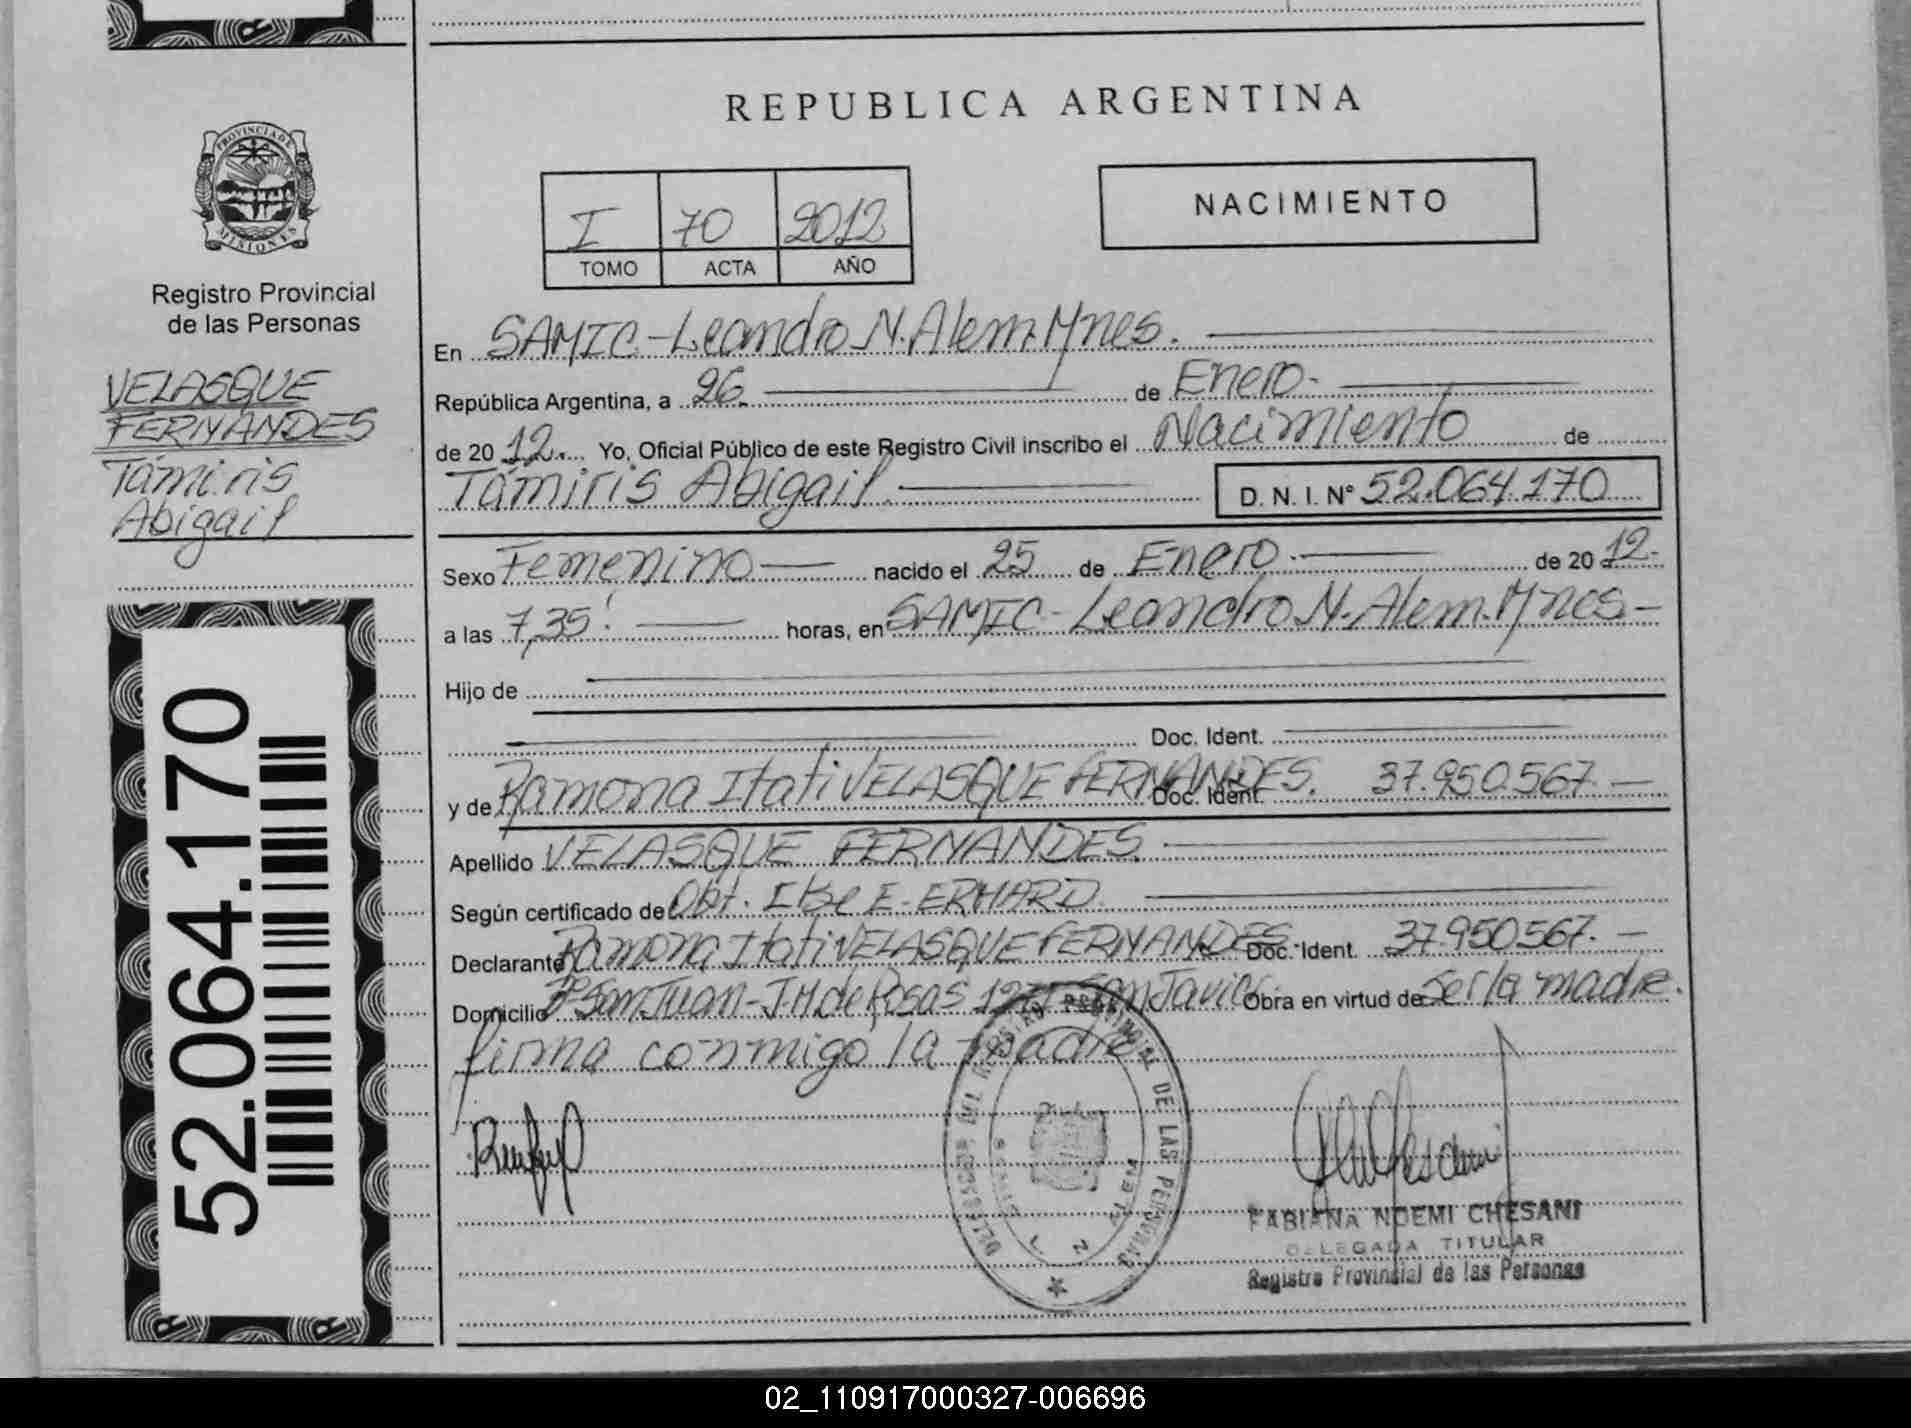 REPUBLICA ARGENTINA
PROVINCIA DE
MISIONES
Registro Provincial
de las Personas
VELASQUE
FERNANDES
Támiris
Abigail
52.064.170
I 70 2012
TOMO ACTA AÑO
NACIMIENTO
En SAMIC-Leandro N. Alem. Mnes.
República Argentina, a 26 de Enero.
de 2012. Yo, Oficial Público de este Registro Civil inscribo el Nacimiento de
Támiris Abigail. D. N. I. Nº 52.064.170
Sexo Femenino nacido el 25 de Enero. de 2012.
a las 7,35 horas, en SAMIC-Leandro N. Alem. Mnes
Hijo de
Doc. Ident.
y de Ramona Itati VELASQUE FERNANDES. Doc. Ident. 37.950.567.
Apellido VELASQUE FERNANDES.
Según certificado de Obt. Else E. ERHARD.
Declarante Ramona Itati VELASQUE FERNANDES Doc. Ident. 37.950.567.
Domicilio Bº San Juan-J.M. de Rosas San Javier. Obra en virtud de ser la madre.
firma conmigo la madre
REGISTRO PROVINCIAL DE LAS PERSONAS
FABIANA NOEMI CHESANI
DELEGADA TITULAR
Registro Provincial de las Personas
02_110917000327-006696